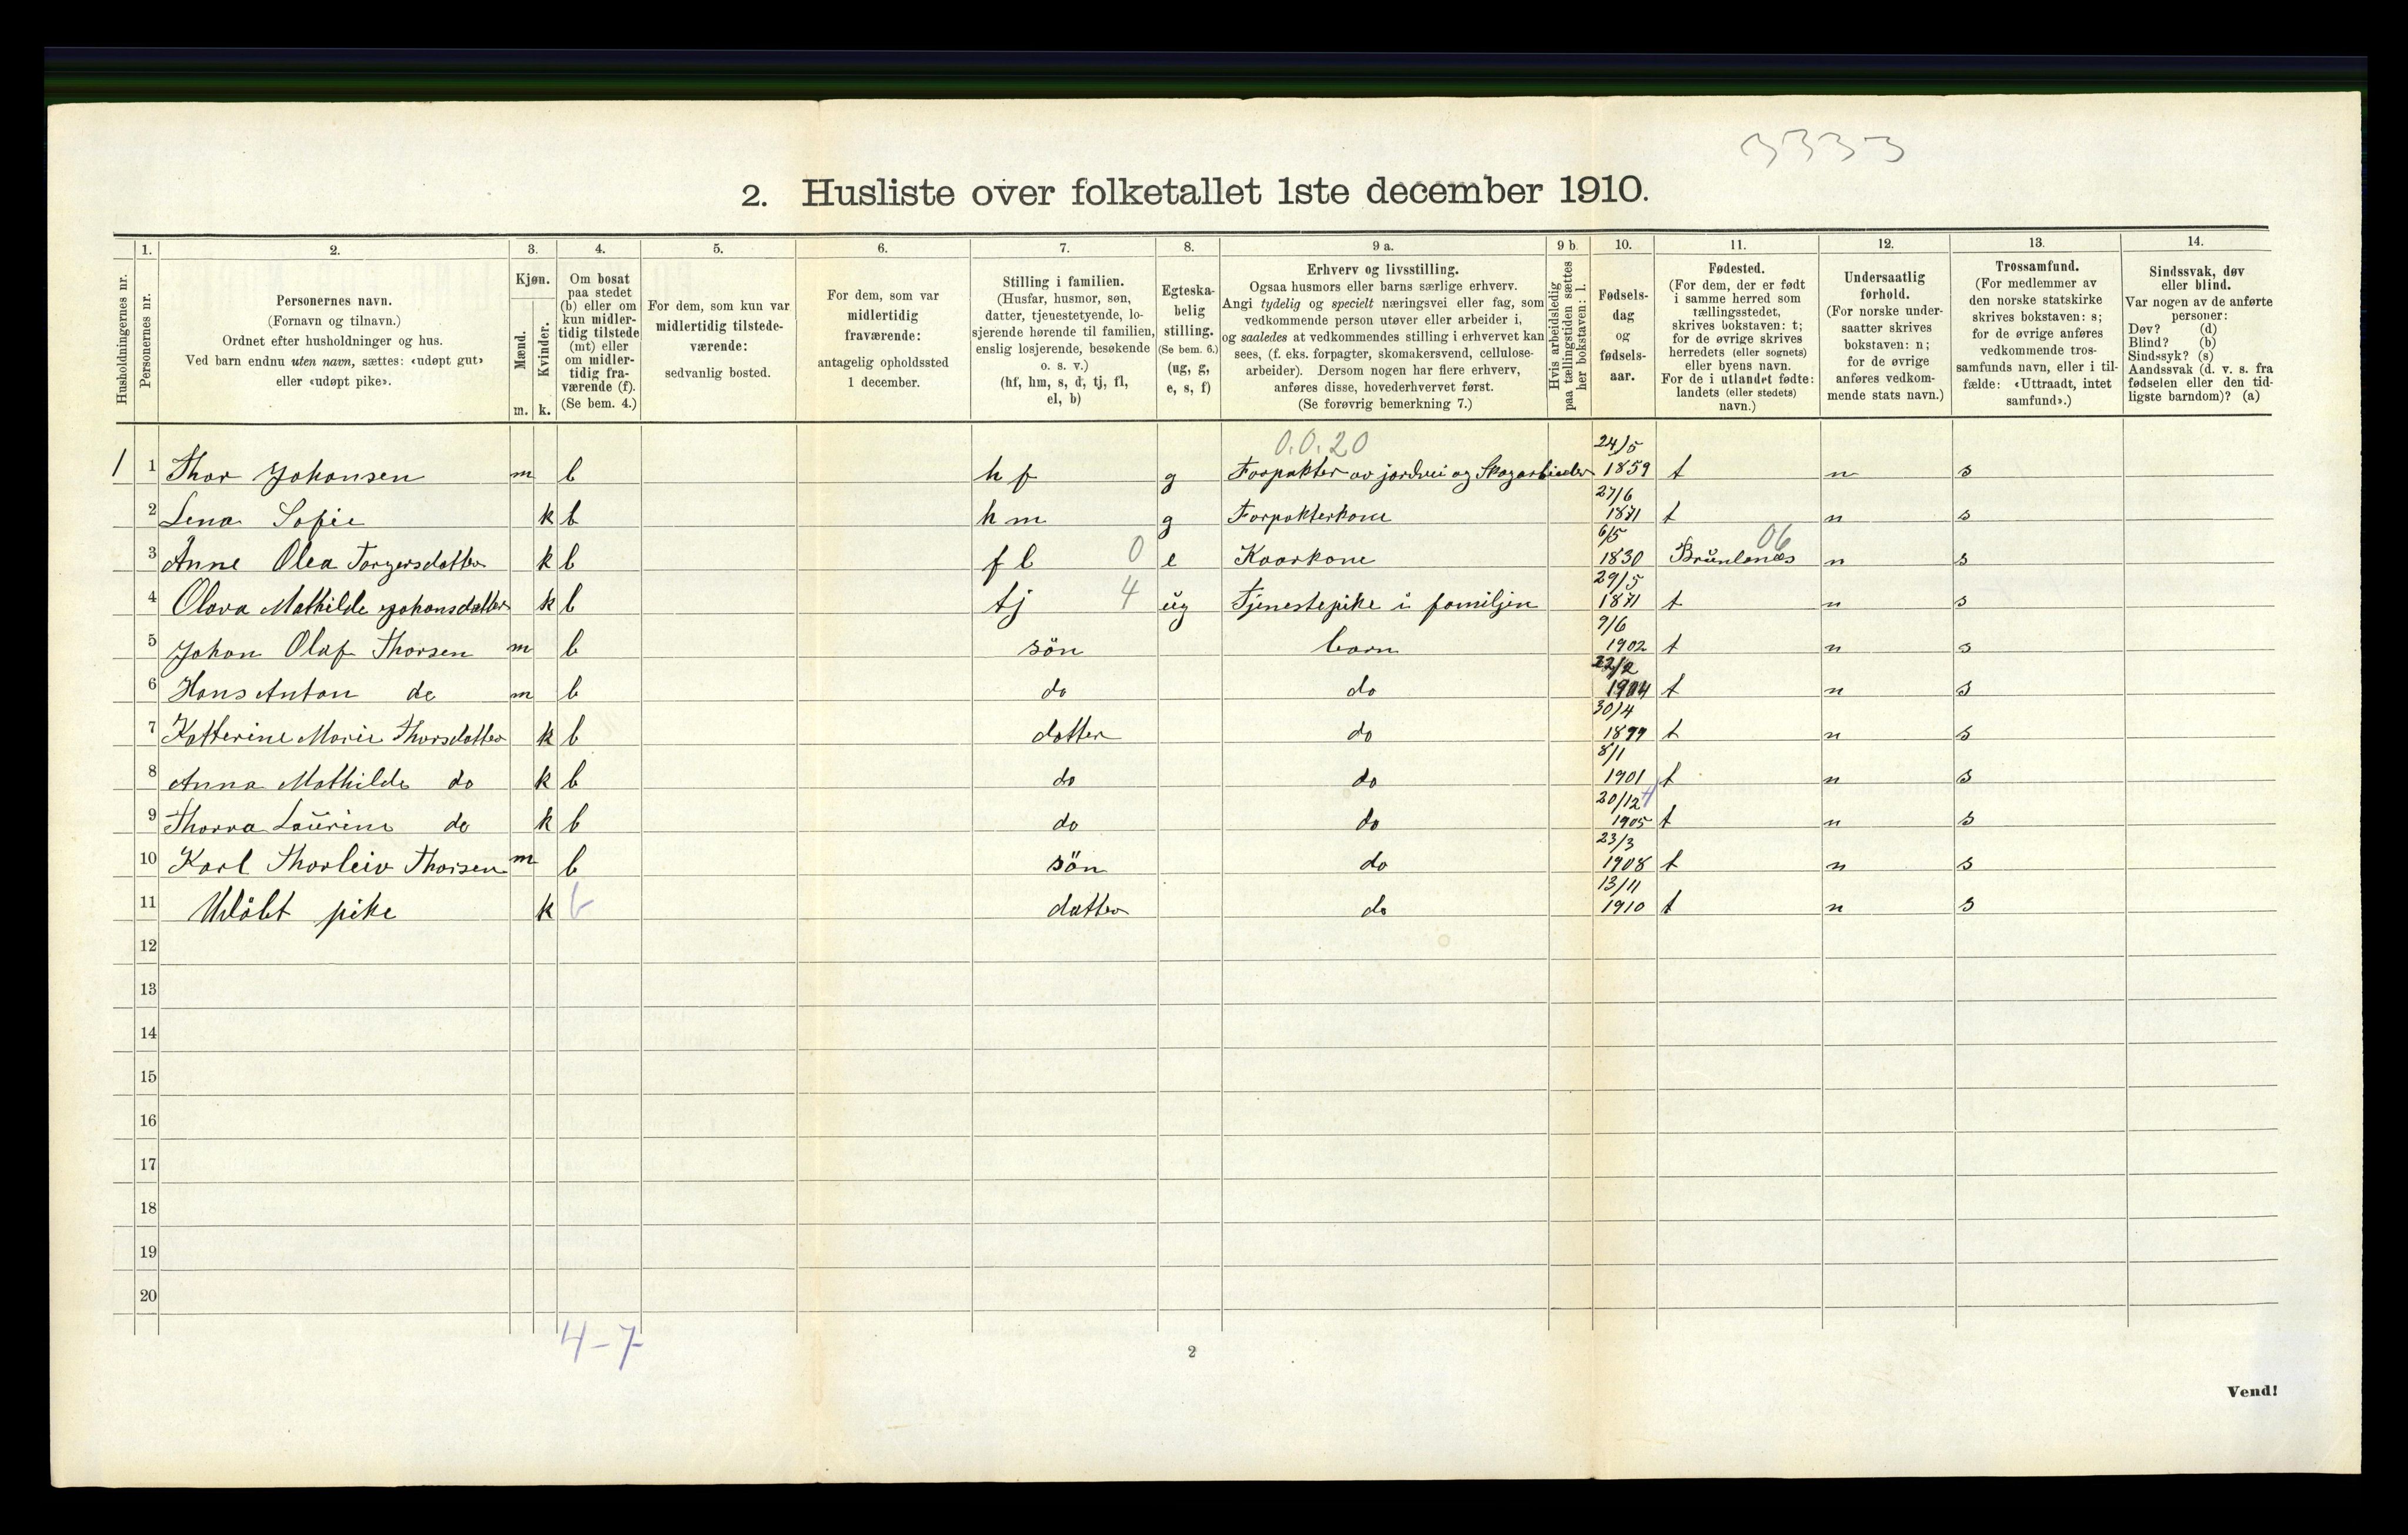 3333
2. Husliste over folketallet 1ste december 1910.
Husholdningernes nr.
1.
Personernes nr.
2.
Personernes navn.
(Fornavn og tilnavn.)
Ordnet efter husholdninger og hus.
Ved barn endnu uten navn, sættes: «udøpt gut»
eller «udøpt pike».
3.
Kjøn.
Mænd.
Kvinder.
m. k.
4.
Om bosat
paa stedet
(b) eller om
kun midler-
tidig tilstede
(mt) eller
om midler-
tidig fra-
værende (f).
(Se bem. 4.)
5.
For dem, som kun var
midlertidig tilstede-
værende:
sedvanlig bosted.
6.
For dem, som var
midlertidig
fraværende:
antagelig opholdssted
1 december.
7.
Stilling i familien.
(Husfar, husmor, søn,
datter, tjenestetyende, lo-
sjerende hørende til familien,
enslig losjerende, besøkende
o. s. v.)
(hf, hm, s, d, tj, fl,
el, b)
8.
Egteska-
belig
stilling.
(Se bem. 6.)
(ug, g,
e, s, f)
9 a.
Erhverv og livsstilling.
Ogsaa husmors eller barns særlige erhverv.
Angi tydelig og specielt næringsvei eller fag, som
vedkommende person utøver eller arbeider i,
og saaledes at vedkommendes stilling i erhvervet kan
sees, (f. eks. forpagter, skomakersvend, cellulose-
arbeider). Dersom nogen har flere erhverv,
anføres disse, hovederhvervet først.
(Se forøvrig bemerkning 7.)
9 b.
Hvis arbeidsledig
paa tællingstiden sættes
her bokstaven: l.
10.
Fødsels-
dag
og
fødsels-
aar.
11.
Fødested.
(For dem, der er født
i samme herred som
tællingsstedet,
skrives bokstaven: t;
for de øvrige skrives
herredets (eller sognets)
eller byens navn.
For de i utlandet fødte:
landets (eller stedets)
navn.)
12.
Undersaatlig
forhold.
(For norske under-
saatter skrives
bokstaven: n;
for de øvrige
anføres vedkom-
mende stats navn.)
13.
Trossamfund.
(For medlemmer av
den norske statskirke
skrives bokstaven: s;
for de øvrige anføres
vedkommende tros-
samfunds navn, eller i til-
fælde: «Uttraadt, intet
samfund».)
14.
Sindssvak, døv
eller blind.
Var nogen av de anførte
personer:
Døv? (d)
Blind? (b)
Sindssyk? (s)
Aandssvak (d. v. s. fra
fødselen eller den tid-
ligste barndom)? (a)
0.0.20
1 1 Thor Johansen m b h f g Forpakter av jordvei og Skogarbieder 24/5 1859 t n s
2 Lena Sofie k b h m g Forpakterkone 27/6 1871 t n s
3 Anne Olea Torgersdatter k b f l 0 e Kaarkone 6/5 1830 Brünlanæs 06 n s
4 Olava Mathilde Johansdatter k b tj 4 üg Tjenestepike i familjen 29/5 1871 t n s
5 Johan Olaf Thorsen m b sön barn 9/6 1902 t n s
6 Hans Anton do m b do do 22/2 1904 t n s
7 Katterine Marie Thorsdatter k b datter do 30/4 1899 t n s
8 Anna Mathilde do k b do do 8/1 1901 t n s
9 Thorra Laürine do k b do do 20/12 1905 t n s
10 Karl Thorleiv Thorsen m b sön do 23/3 1908 t n s
11 Udöbt pike k b datter do 13/11 1910 t n s
12
13
14
15
16
17
18
19
20
4-7
2
Vend!